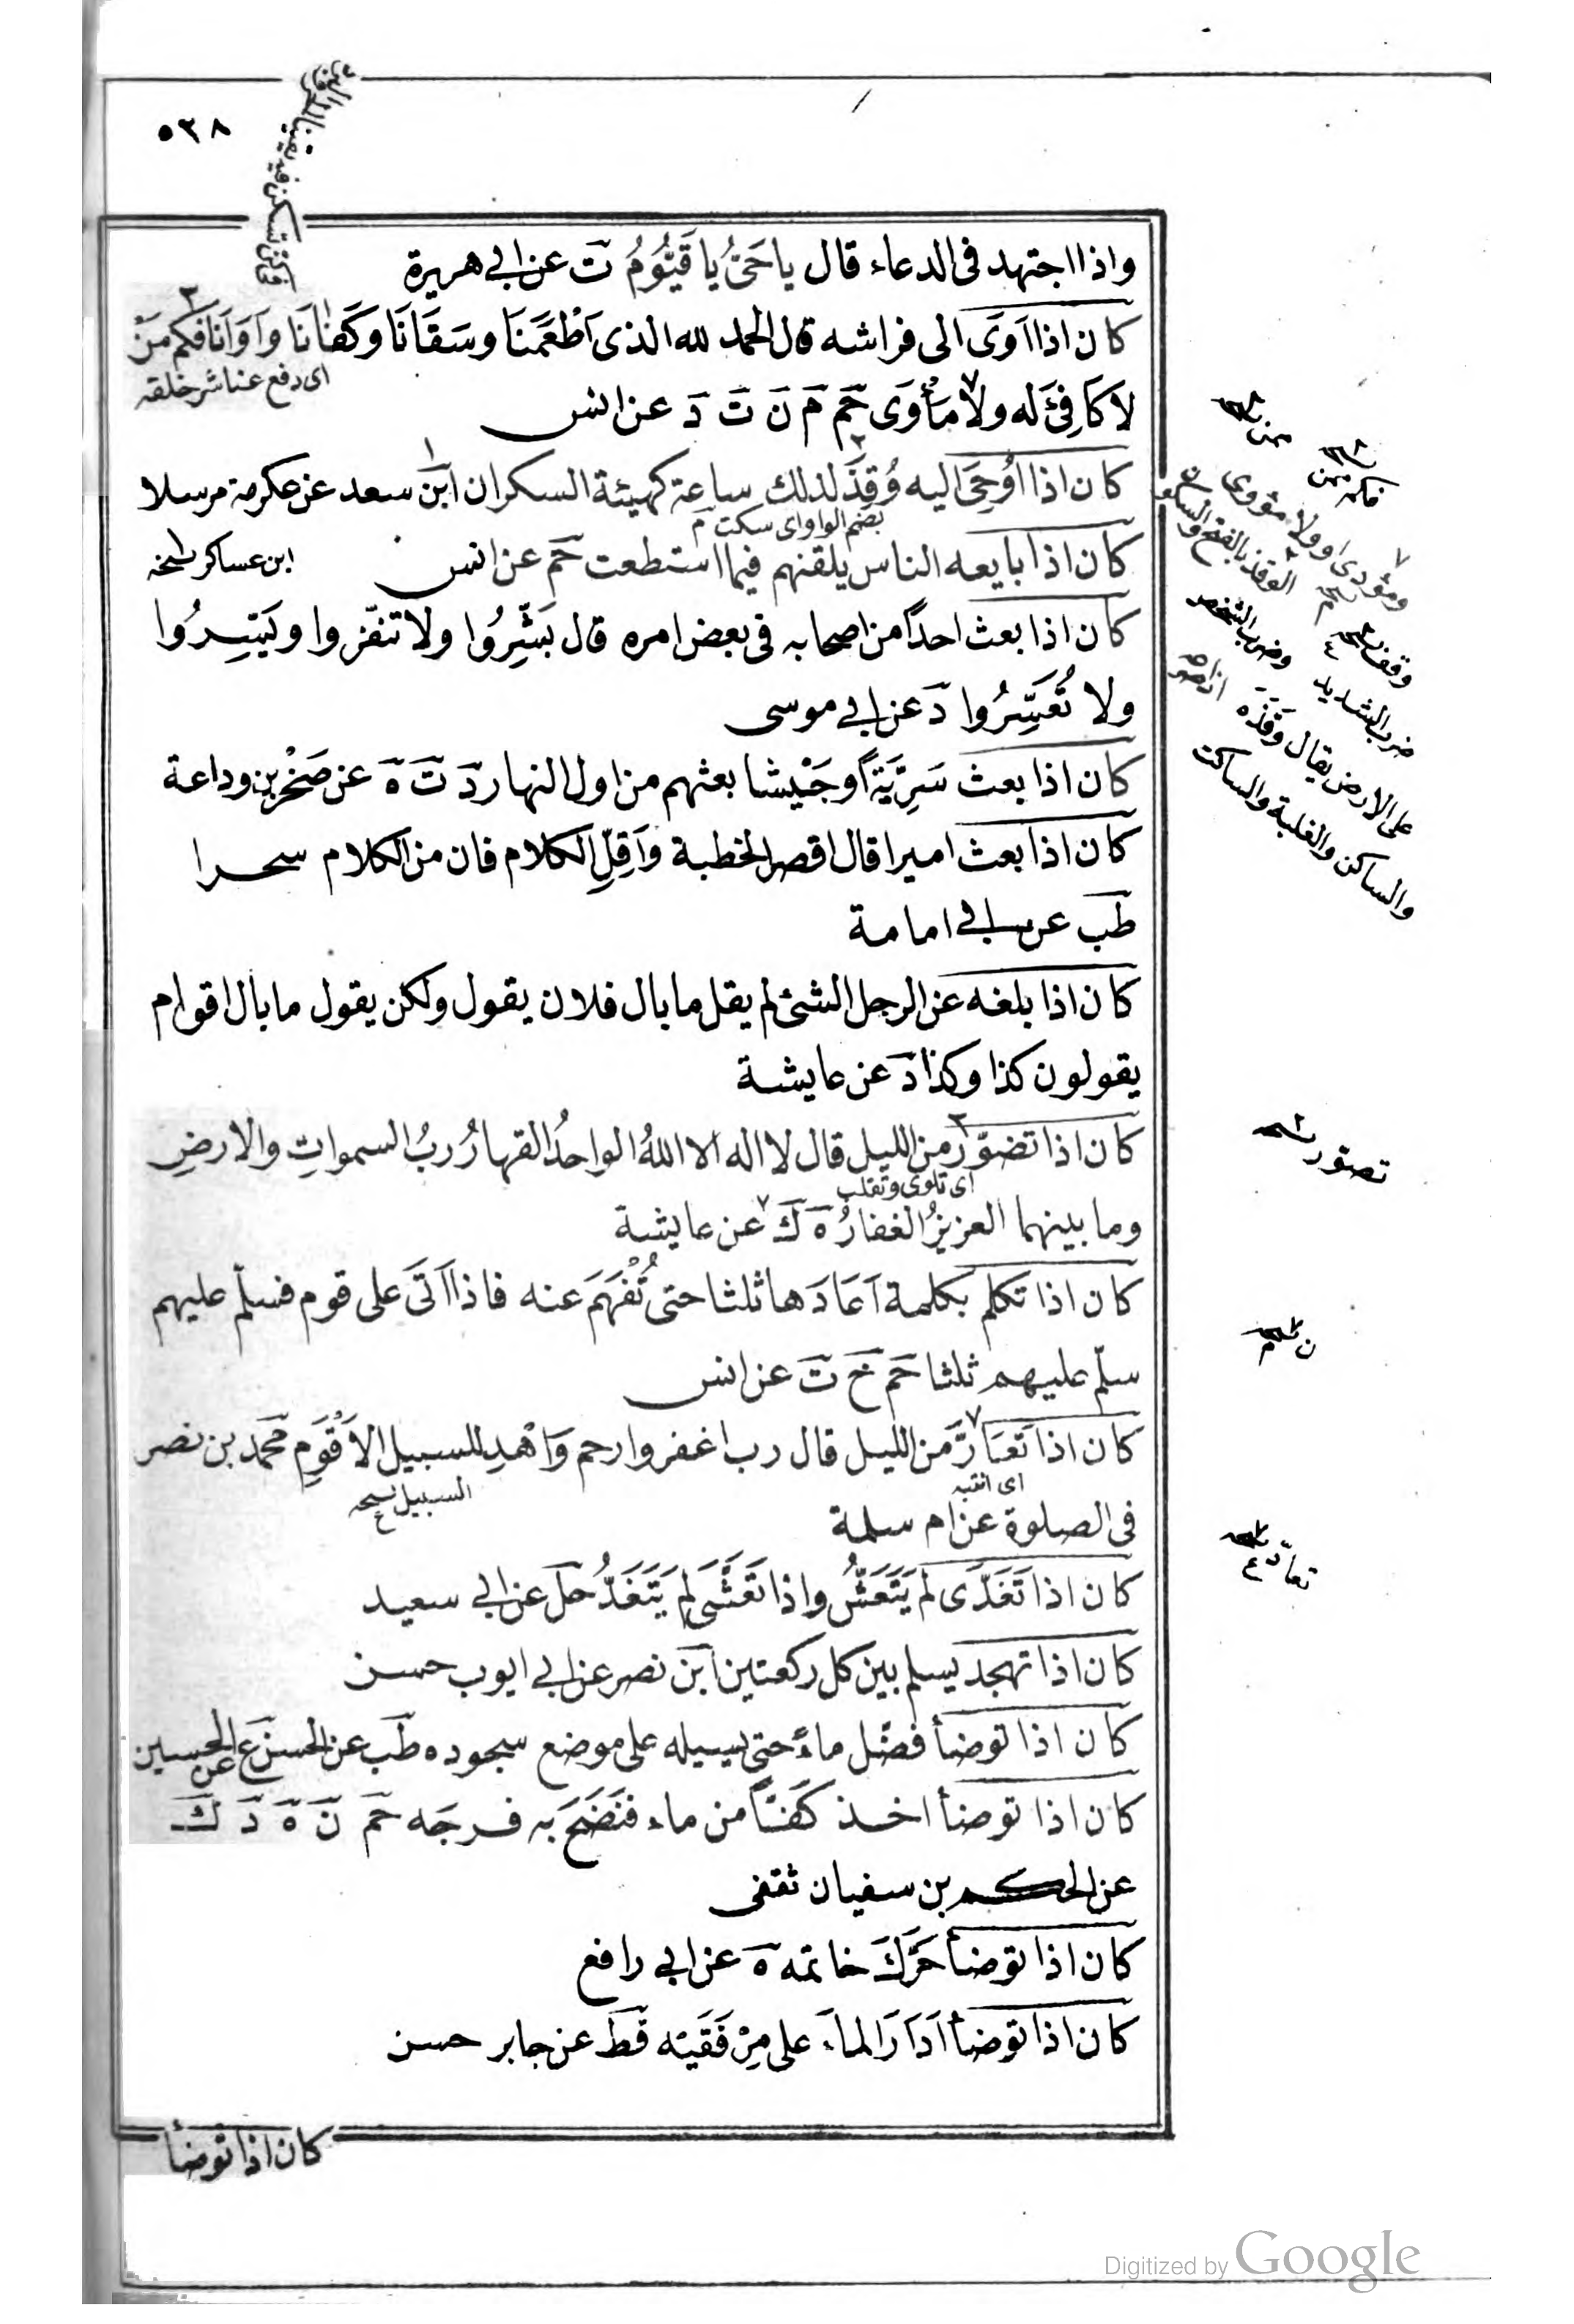 ٥٣٨
واذا اجتهد فى الدعاء قال يا حَىُّ يا قَيُّوُمُ تَ عن ابي هريرة
كان اذا اَوَىَ الى فراشه قال الحمد لله الذى اَطْعَمَنَا وسَقَانَا وكَفَانَا وَآوَانَا فكم مَنْ
اى دفع عنا شر خلقه
لا كَافِئَ له ولا مَأْوَى حَم مَ نَ تَ دَ عن انس
كان اذا اُوحِىَ اليه وُقِذَ لذلك ساعة كهيئة السكران ابن سعد عن عكرمة مرسلا
بضم الواو اى سكت م
كان اذا بايعه الناس يلقنهم فيما استطعت حَم عن انس
ابن عساكر نسخه
كان اذا بعث احداً من اصحابه فى بعض امره قال بَشِّرُوا ولا تنفّروا ويَسِّرُوا
ولا تُعَسِّرُوا دَ عن ابي موسى
كان اذا بعث سَرِيَّةً او جَيْشا بعثهم من اول النهار دَ تَ هَ عن صَخْر بن وداعة
كان اذا بعث اميرا قال اقصر الخطبة وَاَقِلِّ الكلام فان من الكلام سحرا
طَب عن ابي امامة
كان اذا بلغه عن الرجل الشئ لم يقل ما بال فلان يقول ولكن يقول ما بال اقوام
يقولون كذا وكذا دَ عن عايشة
كان اذا تضوّر من الليل قال لا اله الا اللهُ الواحدُ القهارُ ربُ السمواتِ والارضِ
اى تلوى وتقلب
وما بينهما العزيزُ الغفارُ هَ كَ عن عايشة
كان اذا تكلم بكلمة اَعَادَها ثلثا حتى تُفْهَمَ عنه فاذا اَتَى على قوم فسلّم عليهم
سلّم عليهم ثلثا حَم خَ تَ عن انس
كان اذا تَعَارَّ من الليل قال رب اغفر وارحم وَاهْدِ للسبيل الاَقْوَمِ محمد بن نصر
اى انتبه
السبيل نسخه
فى الصلوة عن ام سلمة
كان اذا تَغَدَّى لم يَتَعَشَّ واذا تَعَشَّى لم يَتَغَدَّ حَل عن ابي سعيد
كان اذا تهجد يسلم بين كل ركعتين ابن نصر عن ابي ايوب حسن
كان اذا توضأ فضّل ماءً حتى يسيله على موضع سجوده طَب عن الحسن ع عن الحسين
كان اذا توضأ اخذ كَفّاً من ماء فنَضَحَ به فرجَه حَم نَ هَ دَ كَ
عن الحكم بن سفيان ثقفى
كان اذا توضأ حَرَّكَ خاتمه هَ عن ابي رافع
كان اذا توضأ اَدَارَ الماءَ على مِرْفَقَيْه قَط عن جابر حسن
كان اذا توضأ
ممن نسخه
فكم ممن نسخه
ومؤدى او ولا مؤوى
وقف نسخه
الوقذ بالفتح والسكون
ضرب الشديد وضرب الشخص
على الارض يقال وَقَذَه اذا ضربه
والساكن والغلبة والساكت
تصوّر نسخه
ن نسخه
تعادّ نسخه
Digitized by Google